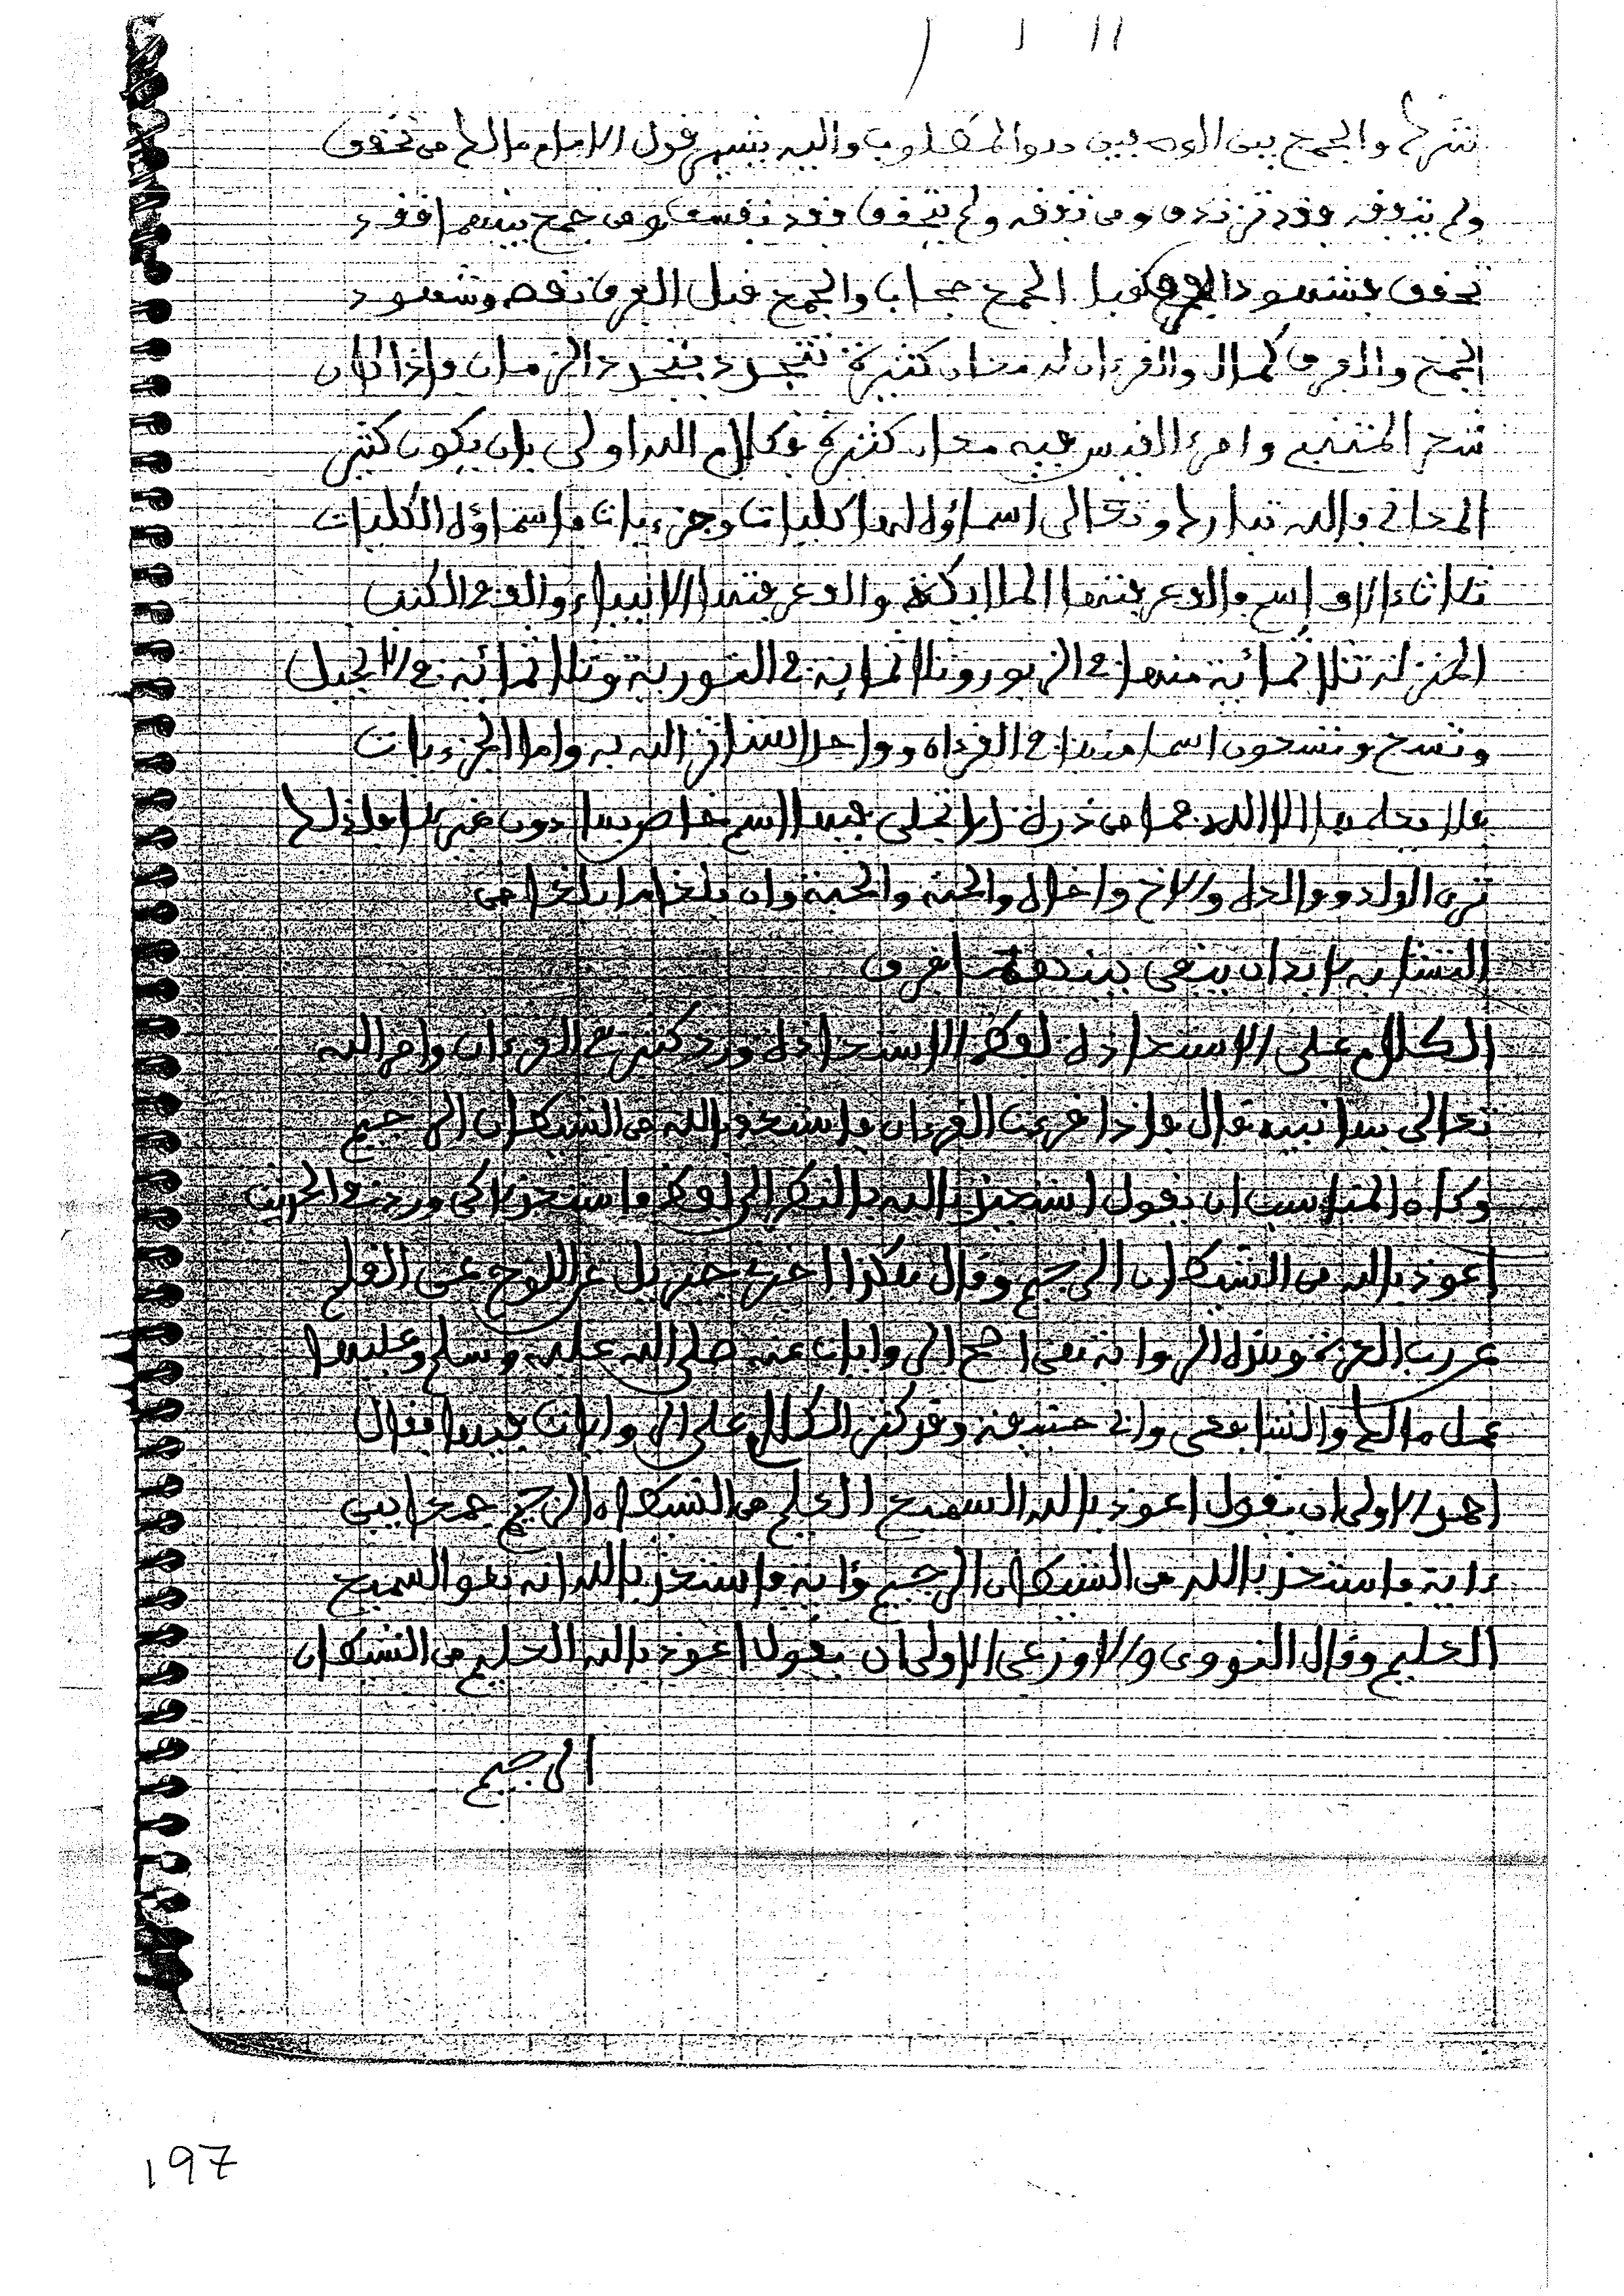 شرك والجمع بين الوجهين هو المطلوب واليه يشير قول الامام مالك من تحقق
ولم يتفقه فقد تزندق ومن تفقه ولم يتحقق فقد تفسق ومن جمع بينهما فقد
تحقق فشهود الفرق قبل الجمع حجاب والجمع قبل الفرق نقص وشهود
الجمع والفرق كمال والقرءان له معان كثيرة تتجدد بتجدد الزمان واذا كان
شعر المتنبي وامرئ القيس فيه معان كثيرة فكلام الله اولى بان يكون كثير
المعاني والله تبارك وتعالى اسماؤه لها كليات وجزءيات فاسماؤه الكليات
ثلاثة الاف اسم والف عرفتها الملائكة والف عرفتها الانبياء والف في الكتب
المنزلة ثلاثمائة منها في الزبور وثلاثماية في التورية وثلاثمائة في الانجيل
وتسع وتسعون اسما منها في القرءان وواحد استاثر الله به واما الجزءيات
فلا يعلمها الا الله فما من ذرة الا تجلى فيها اسم خاص بها دون غيرها فلذلك
ترى الولد ووالده والاخ واخاه والحبة والحبة وان بلغا ما بلغا من
التشابه لابد ان يبقى بينهما فرق
الكلام على الاستعاذة لفظ الاستعاذة ورد كثير في القرءان وامر الله
تعالى بها نبيه فقال فاذا قرءت القرءان فاستعذ بالله من الشيطان الرجيم
وكان المناسب ان يقول استعيذ بالله بالنظر الى لفظ فاستعذ لكن ورد في الحديث
اعوذ بالله من الشيطان الرجيم وقال هكذا اخذته جبريل عن اللوح عن القلم
عن رب العزة وهذه الرواية هي اصح الروايات عنه صلى الله عليه وسلم وعليها
عمل مالك والشافعي وابي حنيفة وقد كثر الكلام على الروايات فيها فقال
احمد الاولى ان يقول اعوذ بالله السميع العليم من الشيطان الرجيم جمعا بين
ءاية فاستعذ بالله من الشيطان الرجيم وءاية فاستعذ بالله انه هو السميع
العليم وقال النووي والاوزعي الاولى ان يقول اعوذ بالله العليم من الشيطان
الرجيم
197